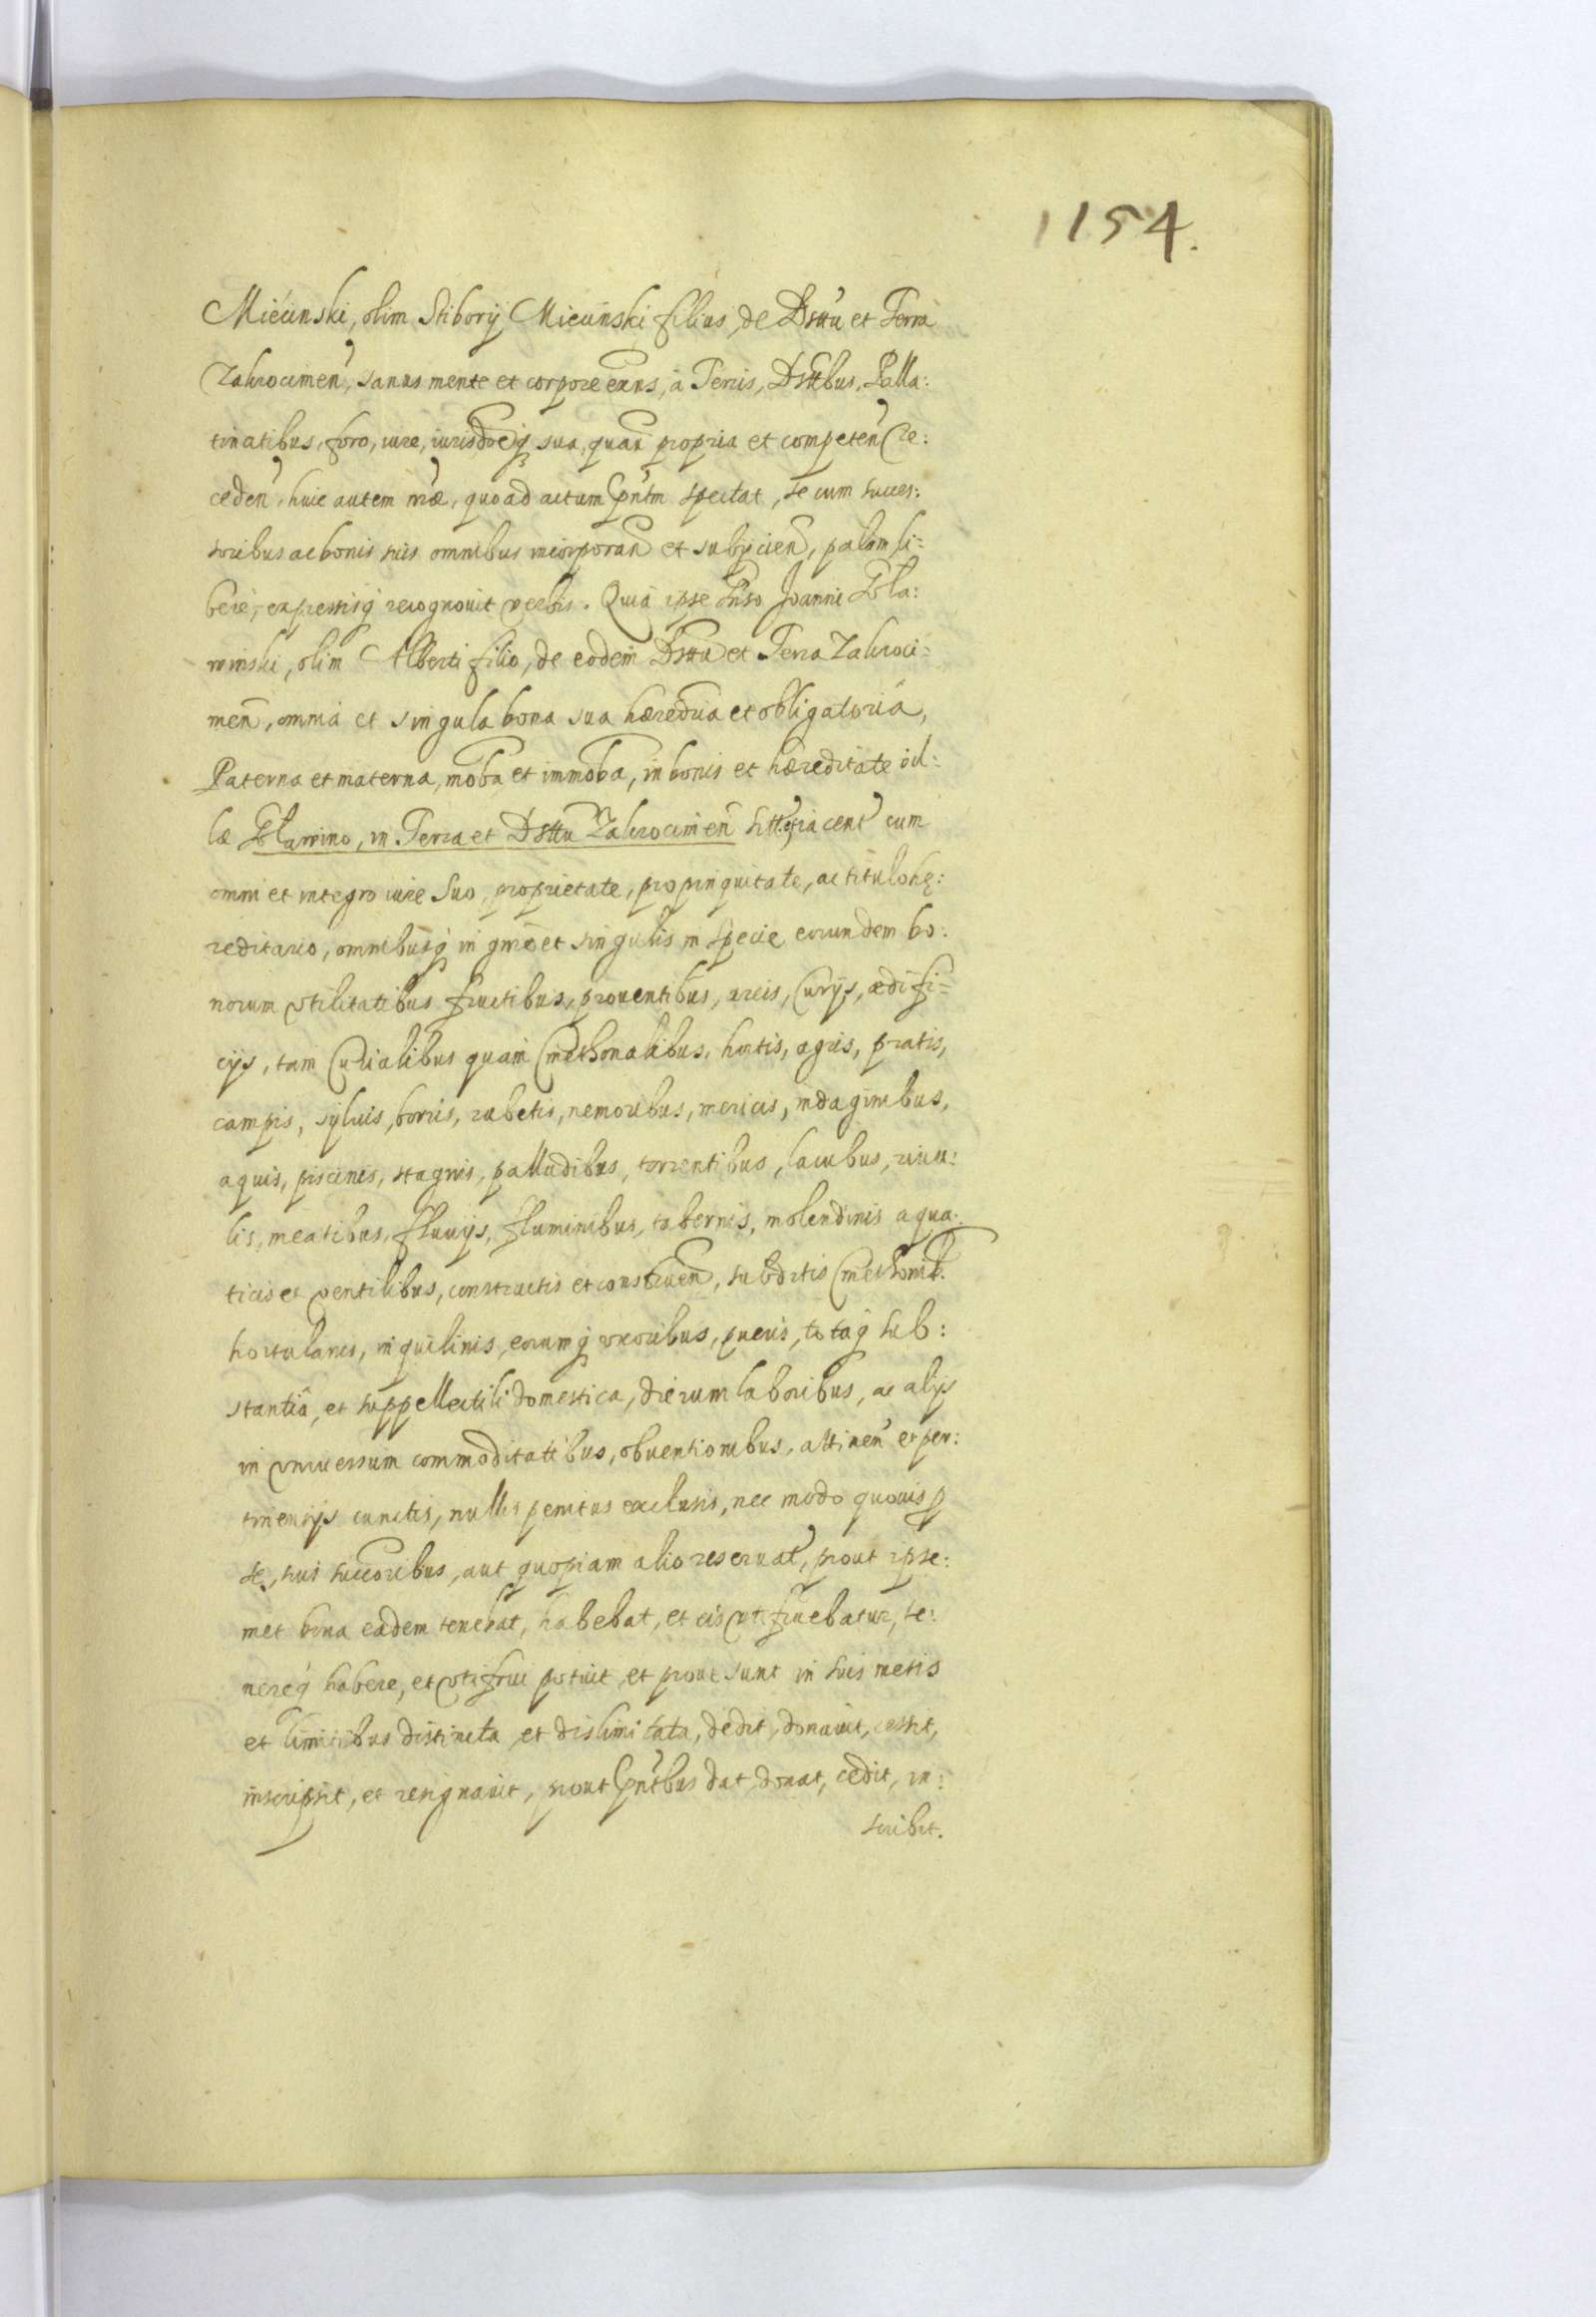 1154.
Miecinski, olim Stiborij Miecinski filius, de Dsttu et Terra
Zakrocimen, sanus mente et corpore exns, à Terris, Dsttbus, Palla:
tinatibus, foro, iure, iurisdoeq sua, quavi propria et competen re:
ceden, huic autem mae, quoad actum pntm spectat, se cum succes:
soribus ac bonis suis omnibus incorporan et subijcien, palam li:
berè, expressisq recognouit verbis. Quia ipse Gnso Joanni
winski, olim Alberti filio, de eodem Dsttu et Terra Zakroci:
men, omnia et singula bona sua haeredria et obligatoria,
Paterna et materna, moba et immoba, in bonis et haereditate vil:
lae in Terra et Dsttu Zakrocimen sitt. iacent cum
omni et integro iure suo, proprietate, propinquitate, ac titulo hę:
reditario, omnibusq in gnre et singulis in specie eorundem bo:
norum vtilitatibus fructibus, prouentibus, areis, Curijs, aedifi=
cijs, tam Curialibus quam Cmethonalibus, hortis, agris, pratis,
campis, syluis, borris, rubetis, nemoribus, mericis, indaginibus,
aquis, piscinis, stagnis, palludibus, torrentibus, lacubus, riuu:
lis, meatibus, fluuijs, fluminibus, tabernis, molendinis aqua:
ticis et ventilibus, constructis et construen, subditis Cmethonib.
hortulanis, inquilinis, eorumq vxoribus, pueris, totaq sub:
stantia, et suppellectili domestica, dierum laboribus, ac alijs
in vniuersum commoditatibus, obuentionibus, attinen et per:
tinentijs cunctis, nullis penitus exclusis, nec modo quouis p
se, suis succoribus, aut quopiam alio reseruat, prout ipse:
met bona eadem tenebat, habebat, et eis vti fruebatur, te:
nereq habere, et vti frui potuit, et prout sunt in suis metis
et limitibus distincta et dislimitata, dedit, donauit, cessit,
inscripsit, et resignauit, prout pntbus dat, donat, cedit, in:
scribit.